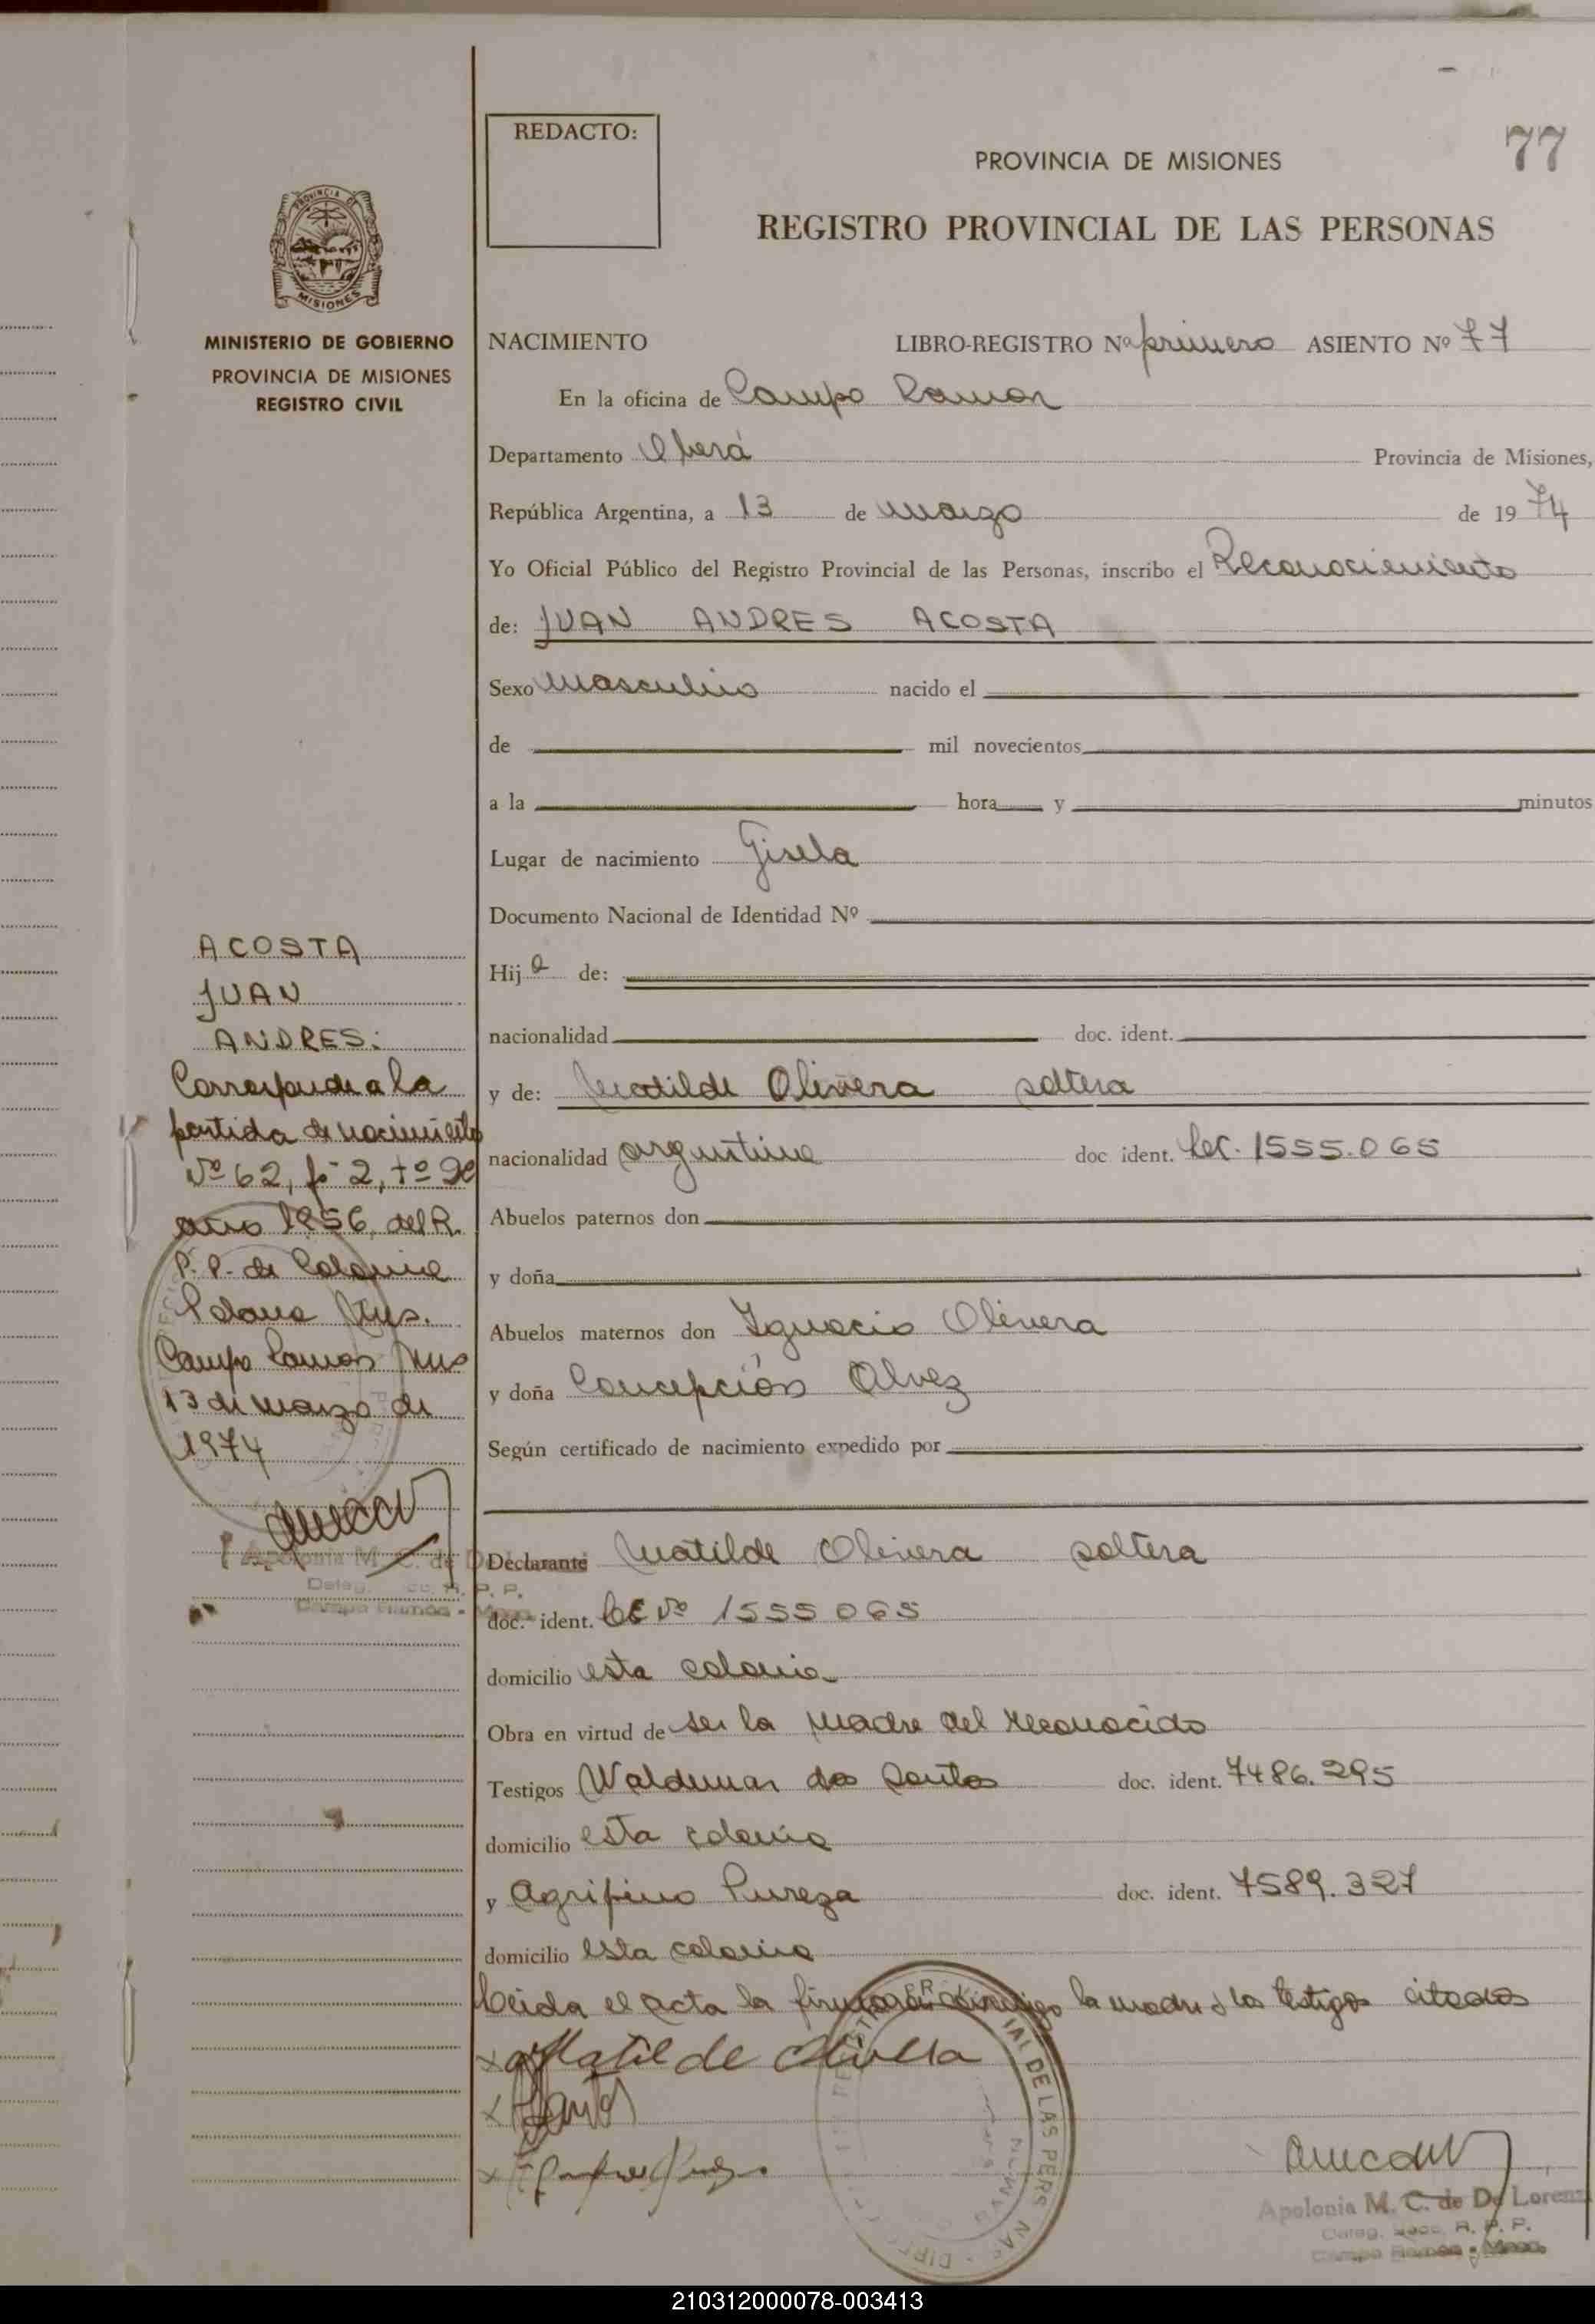 77
REDACTO:
PROVINCIA DE MISIONES
REGISTRO PROVINCIAL DE LAS PERSONAS
PROVINCIA DE
MISIONES
MINISTERIO DE GOBIERNO
PROVINCIA DE MISIONES
REGISTRO CIVIL
NACIMIENTO LIBRO-REGISTRO Nº primero ASIENTO Nº 77
En la oficina de Campo Ramon
Departamento Oberá Provincia de Misiones,
República Argentina, a 13 de marzo de 1974
Yo Oficial Público del Registro Provincial de las Personas, inscribo el Reconocimiento
de: JUAN ANDRES ACOSTA
Sexo masculino nacido el
de mil novecientos
a la hora y minutos
Lugar de nacimiento Gisela
Documento Nacional de Identidad Nº
Hij o de:
nacionalidad doc. ident.
y de: Matilde Olivera soltera
nacionalidad argentina doc ident. 1555.065
Abuelos paternos don
y doña
Abuelos maternos don Ignacio Olivera
y doña Concepción Alvez
Según certificado de nacimiento expedido por
Declarante Matilde Olivera soltera
doc. ident. Nº 1555065
domicilio esta colonia
Obra en virtud de ser la madre del reconocido
Testigos Waldemar dos Santos doc. ident. 7486.295
domicilio esta colonia
y Agripino Pureza doc. ident. 7589.327
domicilio esta colonia
Leida el acta la firmaron conmigo la madre y los testigos citados
Matilde Olivera
ACOSTA
JUAN
ANDRES:
Corresponde a la
partida de nacimiento
Nº 62, fº 2, tº
año 1956, del R.
P.P. de Colonia
Mns.
Campo Ramon Mns
13 de marzo de
1974
Apolonia M. C. de De
Deleg. R. P. P.
Campo Ramón - Mnes.
Apolonia M. C. de De Lorenzi
Deleg. R. P. P.
Campo Ramón - Mnes.
210312000078-003413